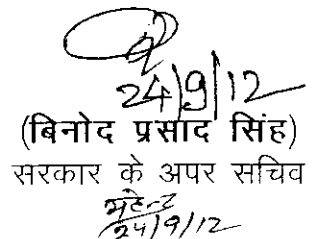 24/9/12
(बिनोद प्रसाद सिंह)
सरकार के अपर सचिव
24/9/12